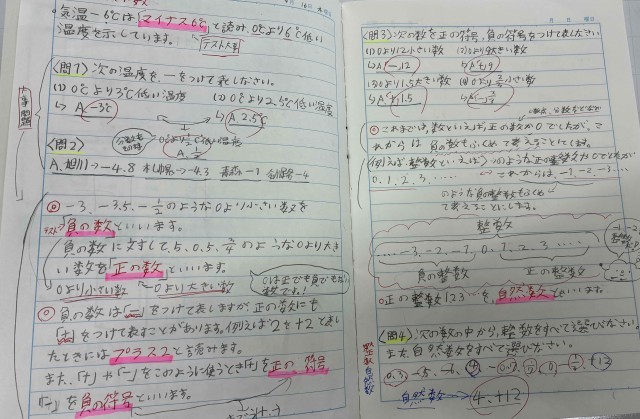 気温-6℃は「マイナス6℃」と読み、0℃より6℃低い
温度を示しています。
テスト大事
<問1> 次の温度を、-をつけて表しなさい。
(1) 0℃より3℃低い温度 (2) 0℃より2.5℃低い温度
↳ A.-3℃ ↳ A.2.5℃
0℃より 低い温度
<問2>
A. 旭川→-4.8 札幌→-4.3 青森→-1
◎ -3、-3.5、-1/2のような0より小さい数を
テスト 負の数といいます。
負の数に対して、5、0.5、3/4のような0より大き
い数を「正の数」といいます。
0より小さい数 0より大きい数
0は正でも負でもない
数です。
◎ 負の数は「-」をつけて表しますが、正の数にも
「+」をつけて表すことがあります。例えば2を+2で表し
たときにはプラス2と読みます。
また、「+」や「-」をこのように使うとき「+」を正の符号、
「-」を負の符号といいます。
<問3> 次の数を正の符号、負の符号をつけて表しなさい。
(1) 0より12小さい数 (2) 0より9大きい数
↳ A.-12 ↳ A.+9
(3) 0より1.5大きい数 (4) 0より 小さい数
↳ A.+1.5
◎ これまでは、数といえば、正の数か0でしたが、こ
れからは負の数もふくめて考えることにします。
例えば整数といえば、つのような正の整数か0でしたが
0、1、2、3、…… これからは、-1、-2、-3……
のような負の整数もふくめ
て考えることにします。
整数
……-3、-2、-1、0、1、2、3……
負の整数 正の整数
◎正の整数123…を、自然数といいます。
<問4> 次の数の中から、整数をすべて選びなさい。
また、自然数をすべて選びなさい。
整数 自然数
自然数→ 4、+12